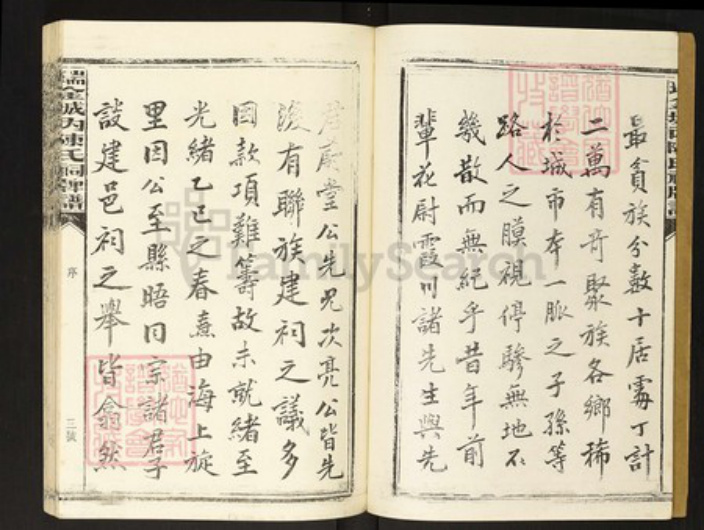 最貧族分數十居處丁計
二萬有奇聚族各鄉稀
於城市本一脈之子孫等
路人之膜視停驂無地不
幾散而無紀乎昔年前
輩花尉霞川諸先生與先
君蔚堂公先兄次亮公皆先
後有聯族建祠之議多
因款項難籌故未就緒至
光緒乙巳之春熹由海上旋
里因公至縣晤同宗諸君子
談建邑祠之舉皆翕然
瑞金城內陳氏祠牌譜
序
三號
FamilySearch